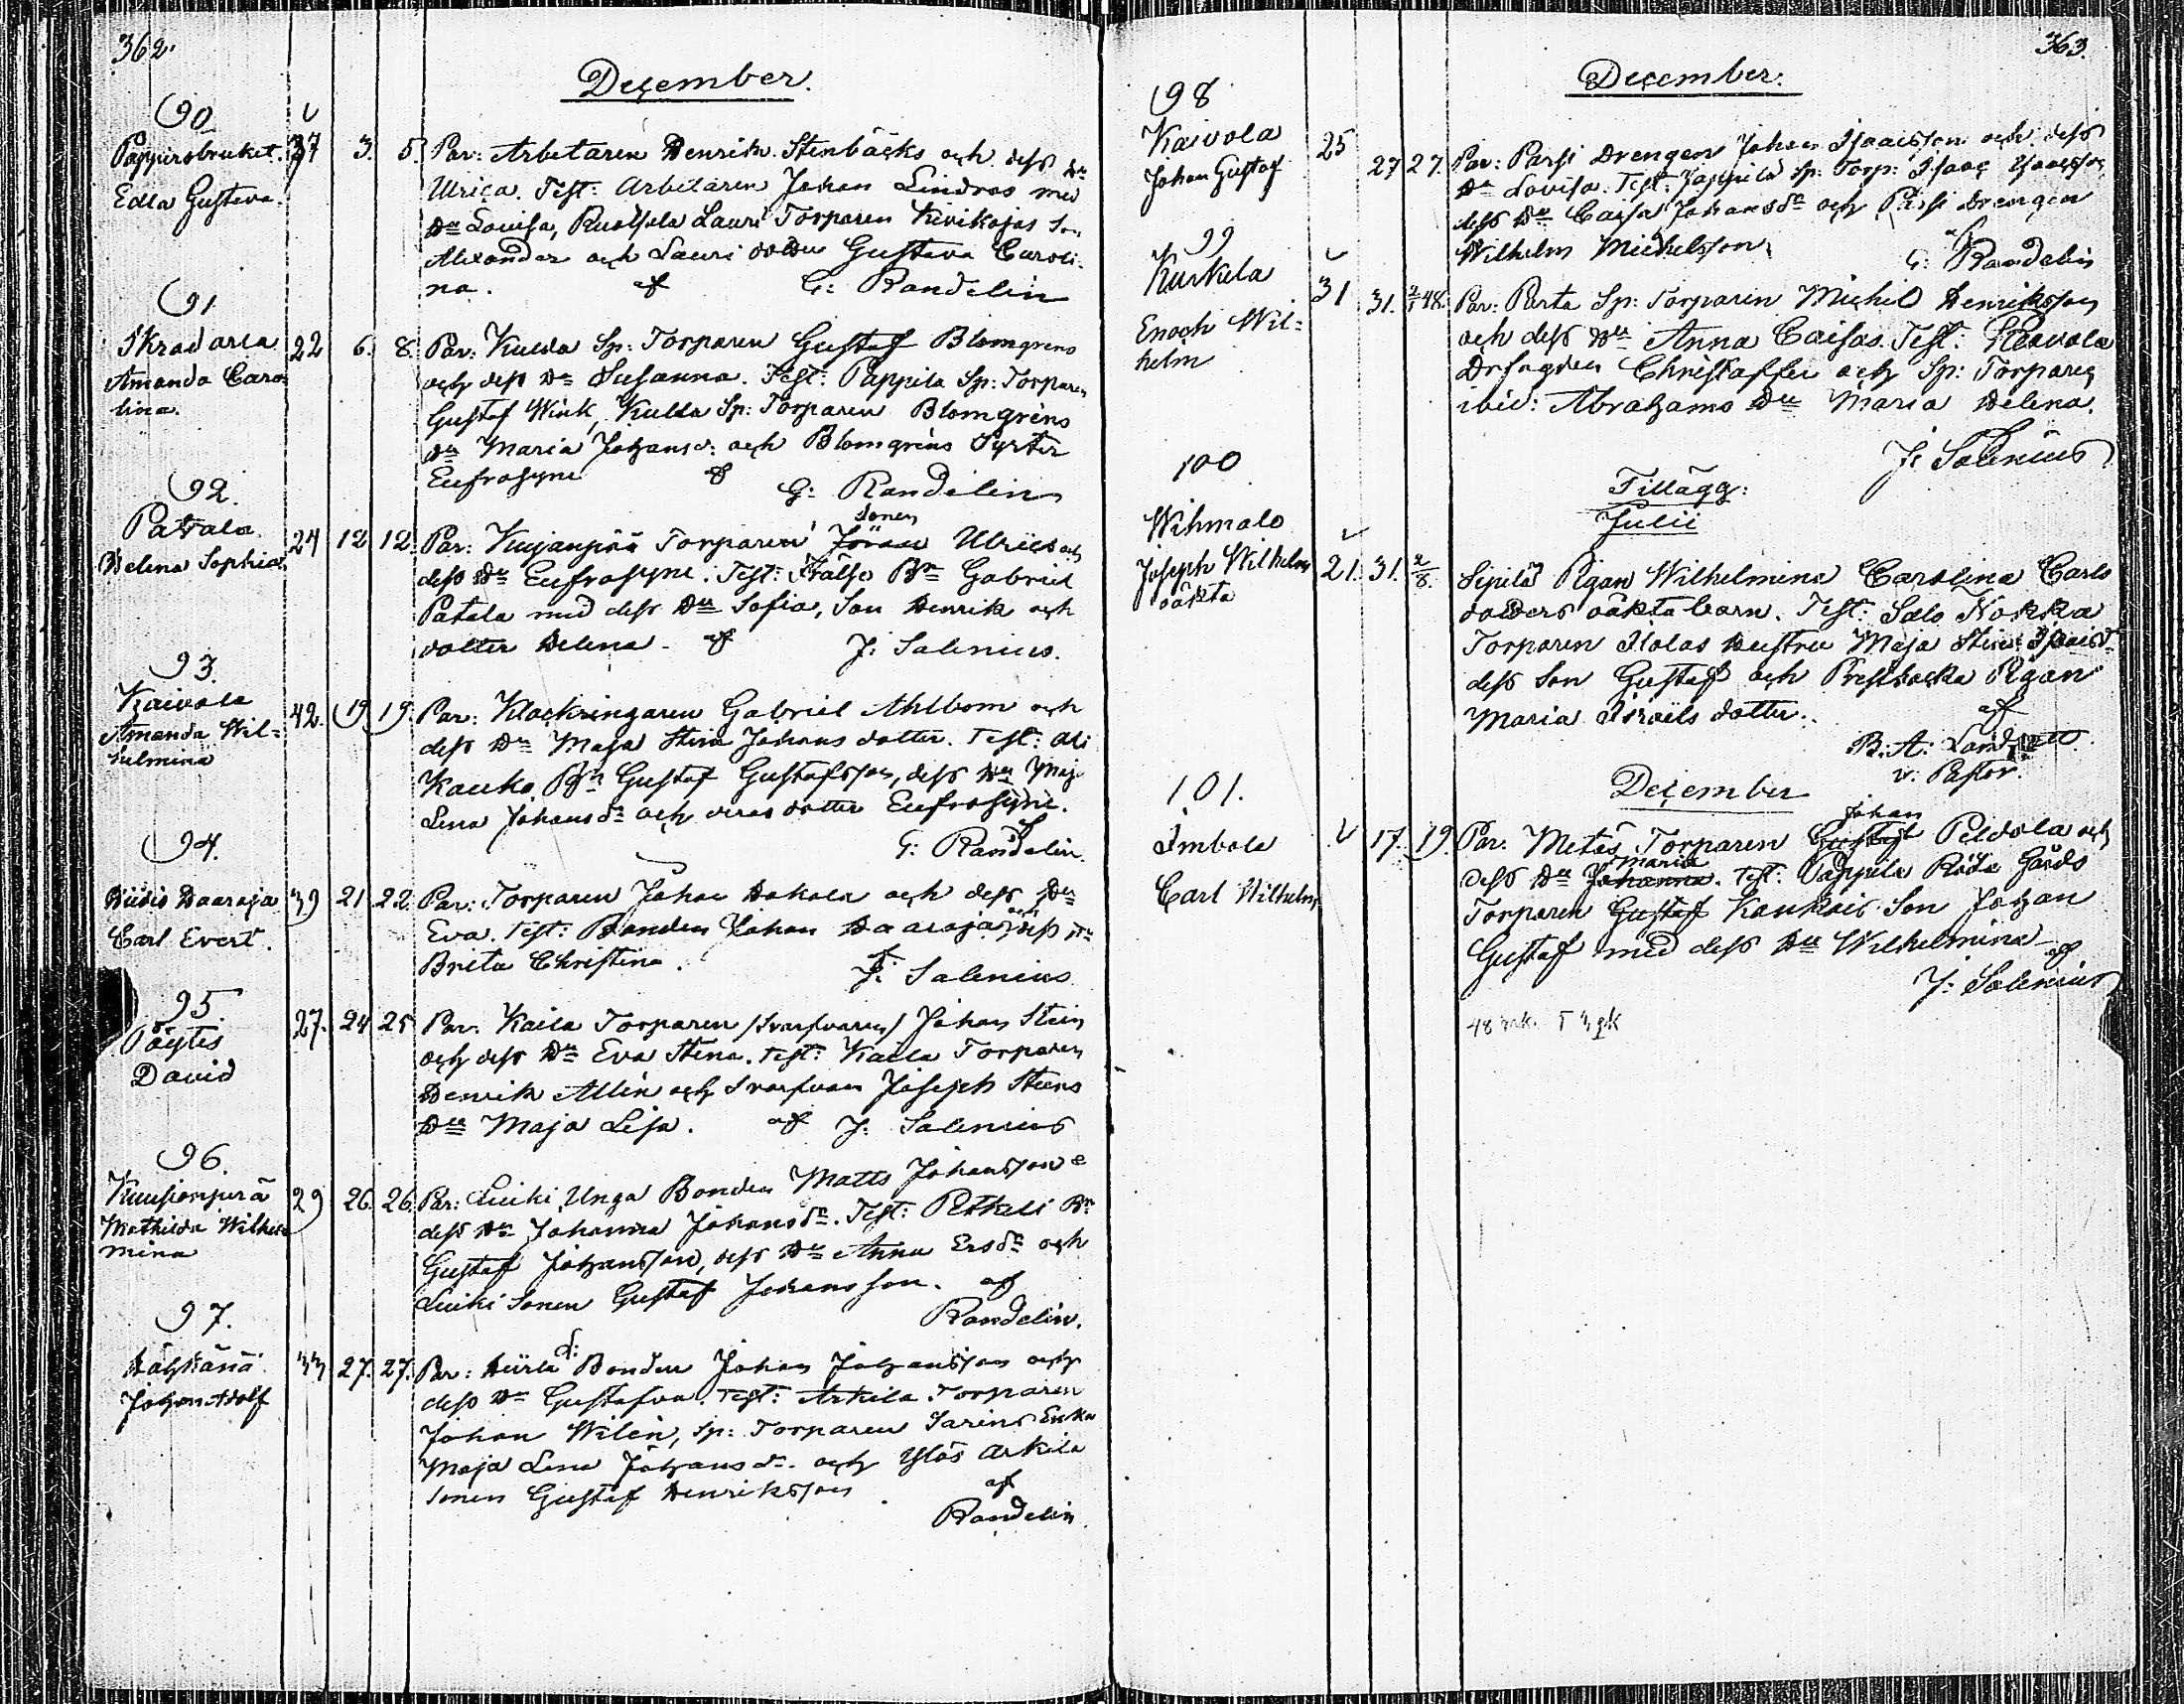 362.
December.
90
Pappersbruket. 37 3. 5. Par: Arbetaren Henrik Stenbäcks och dess Hu
Edla Gustava. Ulrica. Test: Arbetaren Johan Lindros med
Hu Lovisa, Ruotsala Lauri Torparen Kivikojas Son
Alexander och Lauri dottren Gustava Caroli-
na. af G: Randelin
91
Skradarla 22 6. 8. Par: Kulda Sp: Torparen Gustaf Blomgrens
Amanda Caro- och dess Hu Susanna. Test: Pappila Sp: Torparen
lina. Gustaf Wink, Kulda Sp: Torparen Blomgréns
Hu Maria Johans d: och Blomgréns Syster
Eufrosyne af G: Randelin
92.
Patala 24 12 12. Par: Kujanpää Torparen Sonen Ulrics och
Helena Sophia. dess Hu Eufrosyne. Test: Frälse Bn Gabriel
Patala med dess Hu Sofia, Son Henrik och
dotter Helena. af J: Salenius.
93.
Kaivola 42. 19. 19. Par: Klockringaren Gabriel Ahlbom och
Amanda Wil= dess Hu Maja Stina Johans dotter. Test: Ali
helmina Kauko Bn Gustaf Gustafsson, dess Hu Maja
Lena Johans dr och deras dotter Eufrosyne.
af G: Randelin.
94.
39 21 22. Par: Torparen Johan Hakala och dess Hu
Carl Evert. Eva. Test: Bonden Johan Haaraja och dess Hu
Breta Christina. af J: Salenius
95.
Pöytis 27. 24 25 Par: Kaila Torparen /Svarfvaren/ Johan Steen
David och dess Hu Eva Stina. Test: Kaila Torparen
Henrik Allén och Svarfvaren Joseph Steens
Hu Maja Lisa. af J: Salenius
96.
Kuusionperä 29 26. 26. Par: Luiki Unga Bonden Matts Johansson o
Mathilda Wilhel- dess Hu Johanna Johans dr. Test: Pethali Bn
mina Gustaf Johansson, dess Hu Anna Ers dr och
Luiki Sonen Gustaf Johansson. af
Randelin.
97.
33 27. 27. Par: Bonden Johan Johansson och
Johan Adolf dess Hu Gustafva. Test: Arkila Torparen
Johan Wilén, Sp: Torparen Sarins Enka
Maja Lena Johans dr. och Ylös Arkila
Sonen Gustaf Henriksson af
Randelin
363.
December.
98
Kaivola 25 27 27. Par: Parsi Drengen Johan Isaacsson och dess
Johan Gustaf Hu Lovisa. Test: Pappila Sp: Torp: Isaac Isaacsson
dess Hu Caisa Johans dr och Parsi Drengen
Wilhelm Michelsson. af
G: Randelin
99
Kurkela 31 31. 2/1 48. Par: Parta Sp: Torparen Michel Henriksson
Enoch Wil= och dess Hu Anna Caisas. Test:
helm Christaffer och Sp: Torparen
ibid: Abrahams Hu Maria Helena.
J: Salenius
100
Tillägg:
Julii
Wihmalo
Joseph Wilhelm 21. 31. 2/8. Sipilä Pigan Wilhelmina Carolina Carls
oäkta dotters oäkta barn. Test: Salo Nokka
Torparen Hustru Maja Stina
dess Son Gustaf och Prestbacka Pigan
Maria Israels dotter. af
B: A:
v: Pastor.
101.
December
Imbola 17. 19. Par: Metäs Torparen Gustaf Johan Peldola och
Carl Wilhelm dess Hu Johanna Maria. Test: Pappila Röda Gårds
Torparen Gustaf Kaukois Son Johan
Gustaf med dess Hu Wilhelmina af
J: Salenius
48 mk.